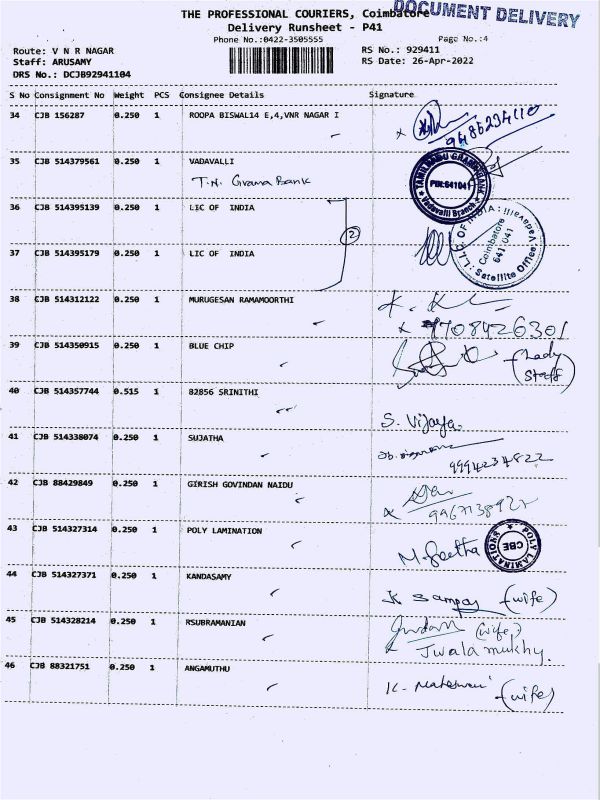 THE PROFESSIONAL COURIERS, Coimbatore
DOCUMENT DELIVERY
Delivery Runsheet - P41
Phone No.:0422-3505555
Page No.:4
Route: V N R NAGAR
RS No.: 929411
Staff: ARUSAMY
RS Date: 26-Apr-2022
DRS No.: DCJB92941104
S No Consignment No Weight PCS Consignee Details Signature
34 CJB 156287 0.250 1 ROOPA BISWAL14 E,4,VNR NAGAR I
x 9486234110
35 CJB 514379561 0.250 1 VADAVALLI
T.N. Grama Bank
TAMILNADU GRAMA BANK
PIN:641041
Vadavalli Branch
36 CJB 514395139 0.250 1 LIC OF INDIA
2
37 CJB 514395179 0.250 1 LIC OF INDIA
L.I.C. OF INDIA : Vadavalli
Coimbatore
641 041
Satellite Office
38 CJB 514312122 0.250 1 MURUGESAN RAMAMOORTHI
x 9708426301
39 CJB 514350915 0.250 1 BLUE CHIP
(Lady
Staff)
40 CJB 514357744 0.515 1 82856 SRINITHI
S. Vijaya.
41 CJB 514338074 0.250 1 SUJATHA
9994234822
42 CJB 88429849 0.250 1 GIRISH GOVINDAN NAIDU
x
43 CJB 514327314 0.250 1 POLY LAMINATION
M. Geetha
POLY LAMINATIONS
CBE
44 CJB 514327371 0.250 1 KANDASAMY
(wife)
45 CJB 514328214 0.250 1 RSUBRAMANIAN
(wife)
x Jwalamukhy.
46 CJB 88321751 0.250 1 ANGAMUTHU
(wife)